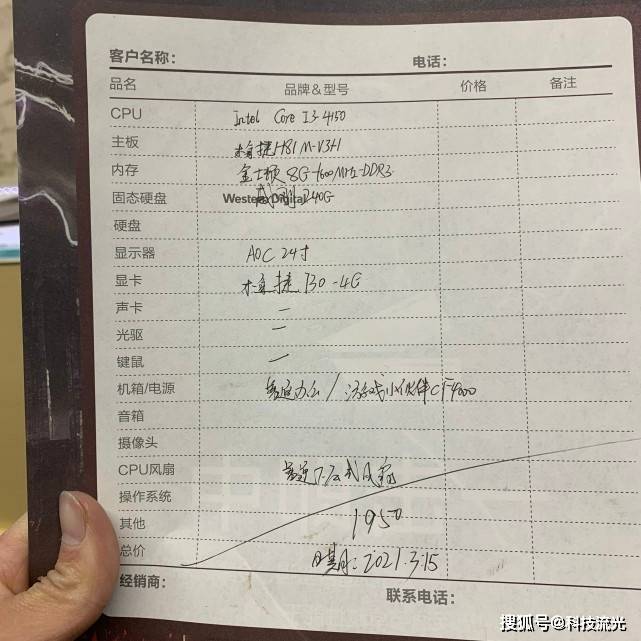 客户名称: 电话:
品名 品牌&型号 价格 备注
CPU Intel Core I3-4150
主板 梅捷H81M-V3H
内存 金士顿 8G-1600MHz-DDR3
固态硬盘 Western Digital 240G
硬盘
显示器 AOC 24寸
显卡 梅捷 730-4G
声卡 —
光驱 —
键鼠 —
机箱/电源 普通办公/游戏小伙伴CF4000
音箱
摄像头
CPU风扇 普通下压式风扇
操作系统
其他 1950
总价 日期: 2021.3.15
经销商: 联系电话:
搜狐号@科技流光